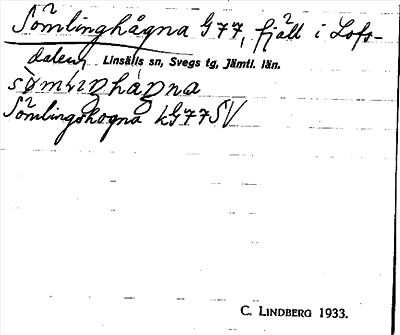 Sömlinghågna G77, fjäll i Lofs-
dalen, Linsälls sn, Svegs tg, Jämtl. län.
Sömlingshogna kG77SV
C. LINDBERG 1933.